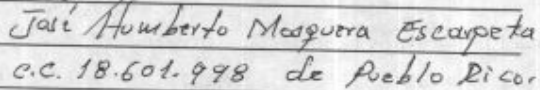 José Humberto Mosquera Escarpeta
c.c. 18.601.998 de Pueblo Rico.